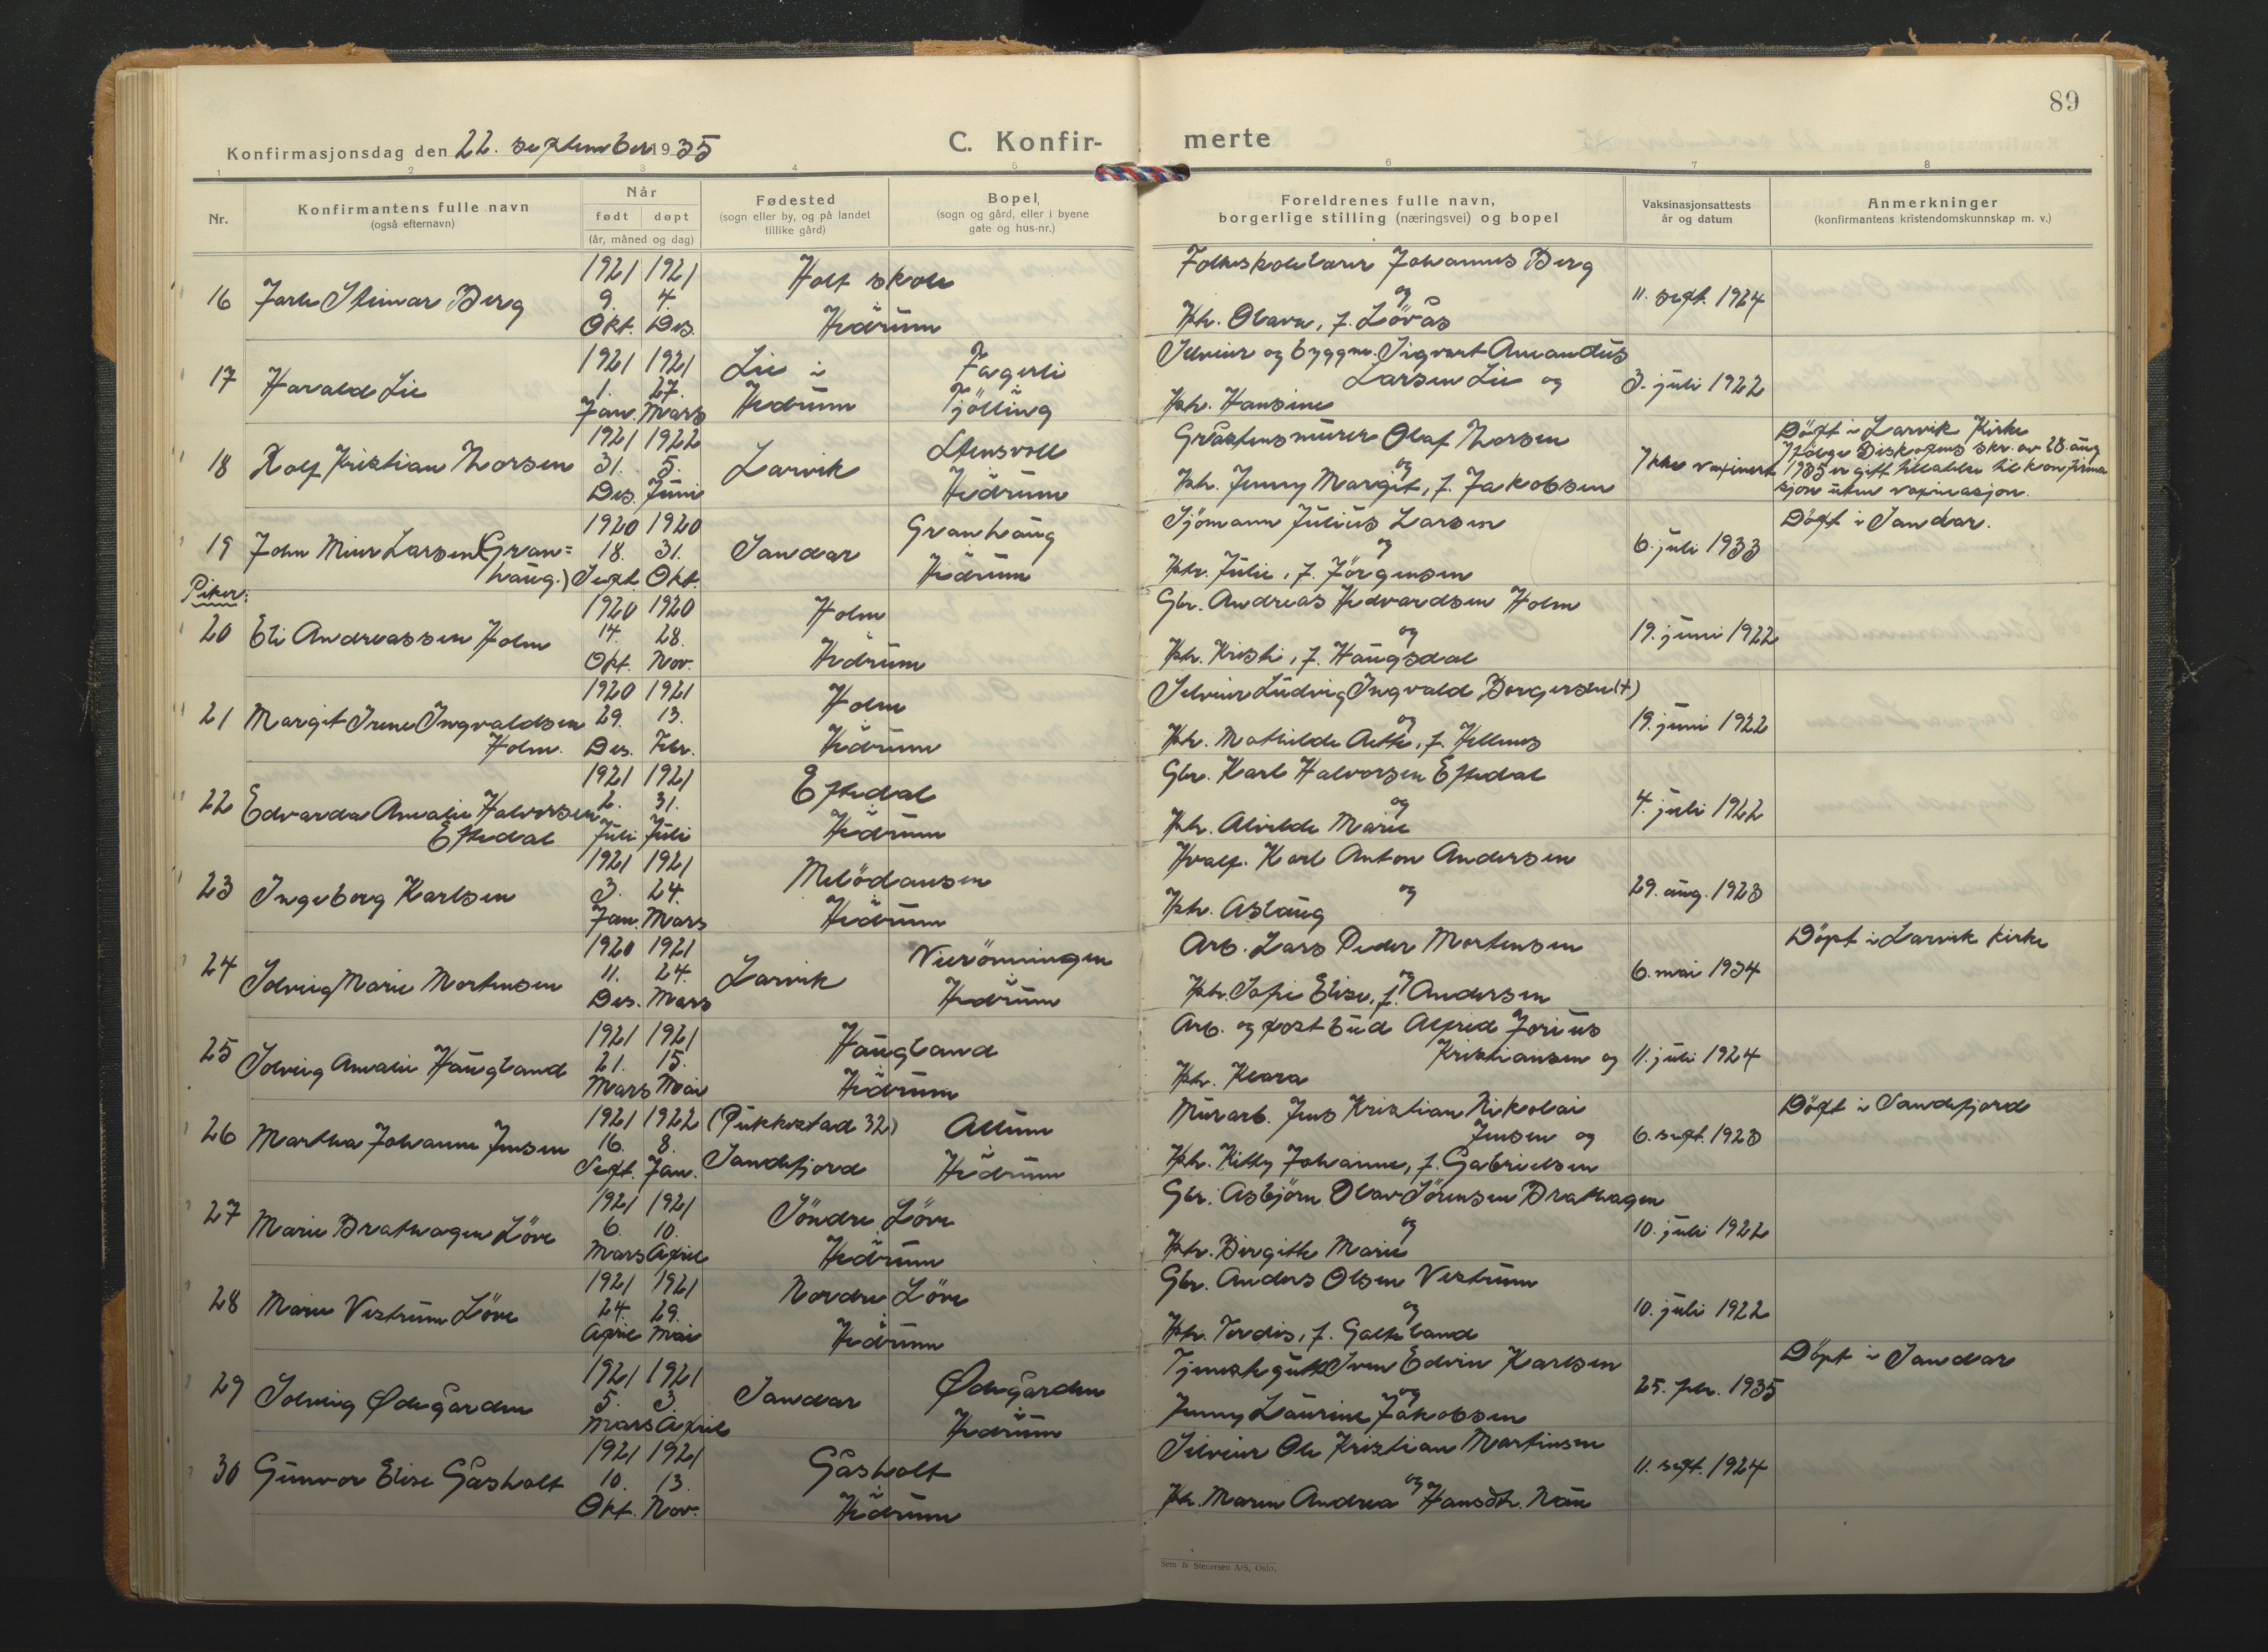 89
Konfirmasjonsdag den 22. september 1935
C. Konfir-
merte
1 2 3 4 5 6 7 8
Nr.
Konfirmantens fulle navn
(også efternavn)
Når
født døpt
(år, måned og dag)
Fødested
(sogn eller by, og på landet
tillike gård)
Bopel
(sogn og gård, eller i byene
gate og hus-nr.)
Foreldrenes fulle navn,
borgerlige stilling (næringsvei) og bopel
Vaksinasjonsattests
år og datum
Anmerkninger
(konfirmantens kristendomskunnskap m. v.)
1921 1921 Holt skole Folkeskolelærer Johannes Berg
16 Jarle Steinar Berg 9. 4. og 11. sept. 1924
Okt. Des. Hedrum Htr. Olava, f. Lövås
1921 1921 Lie i Fagerli Selveier og byggm. Sigvart Amandus
17 Harald Lie 1. 27. Larsen Lie og 3. juli 1922
Jan. Mars Hedrum Tjölling Htr. Hansine
1921 1922 Stensvoll Gråstensmurer Olaf Thorsen Döpt i Larvik Kirke
18 Rolf Kristian Thorsen 31. 5. Larvik og Ikke vaxinert Ifölge Biskopens skr. av 28. aug
1935 er gitt tillatelse til konfirma
Des. Juni Hedrum Htr. Jenny Margit, f. Jakobsen sjon uten vaxinasjon.
1920 1920 Granhaug Sjömann Julius Larsen Döpt i Sandar.
19 John Miur Larsen (Gran= 18. 31. Sandar og 6. juli 1933
haug.) Sept. Okt. Hedrum Htr. Julie, f. Jörgensen
Piker:
1920 1920 Holm Gbr. Andreas Hedvardsen Holm
20 Eli Andreassen Holm 14. 28. og 19. juni 1922
Okt. Nov. Hedrum Htr. Kristi, f. Haugsdal
1920 1921 Holm Selveier Ludvig Ingvald Borgersen (+)
21 Margit Irene Ingvaldsen 29. 13. og 19. juni 1922
Holm. Des. Febr. Hedrum Htr. Mathilde Aette, f. Hellenes
1921 1921 Eftedal Gbr. Karl Halvorsen Eftedal
22 Edvarda Amalie Halvorsen 2. 31. og 4. juli 1922
Eftedal Juli Juli Hedrum Htr. Alvilde Marie
1921 1921 Melödansen Hvalf. Karl Anton Andersen
23 Ingeborg Karlsen 3. 24. og 29. aug. 1923
Jan. Mars Hedrum Htr. Aslaug
1920 1921 Vierönningen Arb. Lars Peder Mortensen Döpt i Larvik kirke
24 Solveig Marie Mortensen 11. 24. Larvik og 6. mai 1934
Des. Mars Hedrum Htr. Sofie Elise, f. Andersen
1921 1921 Haugland Arb. og postbud Alfred Jorius
25 Solveig Amalie Haugland 21. 15. Kristiansen og 11. juli 1924
Mars Mai Hedrum Htr. Klara
1921 1922 (Pukkestad 32) Allum Murarb. Jens Kristian Nikolai Döpt i Sandefjord
26 Martha Johanne Jensen 16. 8. Jensen og 6. sept. 1923
Sept. Jan. Sandefjord Hedrum Htr. Kitty Johanne, f. Gabrielsen
1921 1921 Söndre Löve Gbr. Asbjörn Olav Sörensen Brathagen
27 Marie Brathagen Löve 6. 10. og 10. juli 1922
Mars April Hedrum Htr. Birgitte Marie
1921 1921 Nordre Löve Gbr. Anders Olsen Vestrum
28 Marie Vestrum Löve 24. 29. og 10. juli 1922
April Mai Hedrum Htr. Tordis, f. Galteland
1921 1921 Tjenestegutt Sven Edvin Karlsen Döpt i Sandar
29 Solveig Ødegården 5. 3. Sandar Ødegården og 25. febr. 1935
Mars April Hedrum Jenny Laurine Jakobsen
1921 1921 Gåsholt Selveier Ole Kristian Martinsen
30 Gunvor Elise Gåsholt 10. 13. og 11. sept. 1924
Okt. Nov. Hedrum Htr. Maren Andrea Hansdtr. Nau
Sem & Stenersen A/S, Oslo.